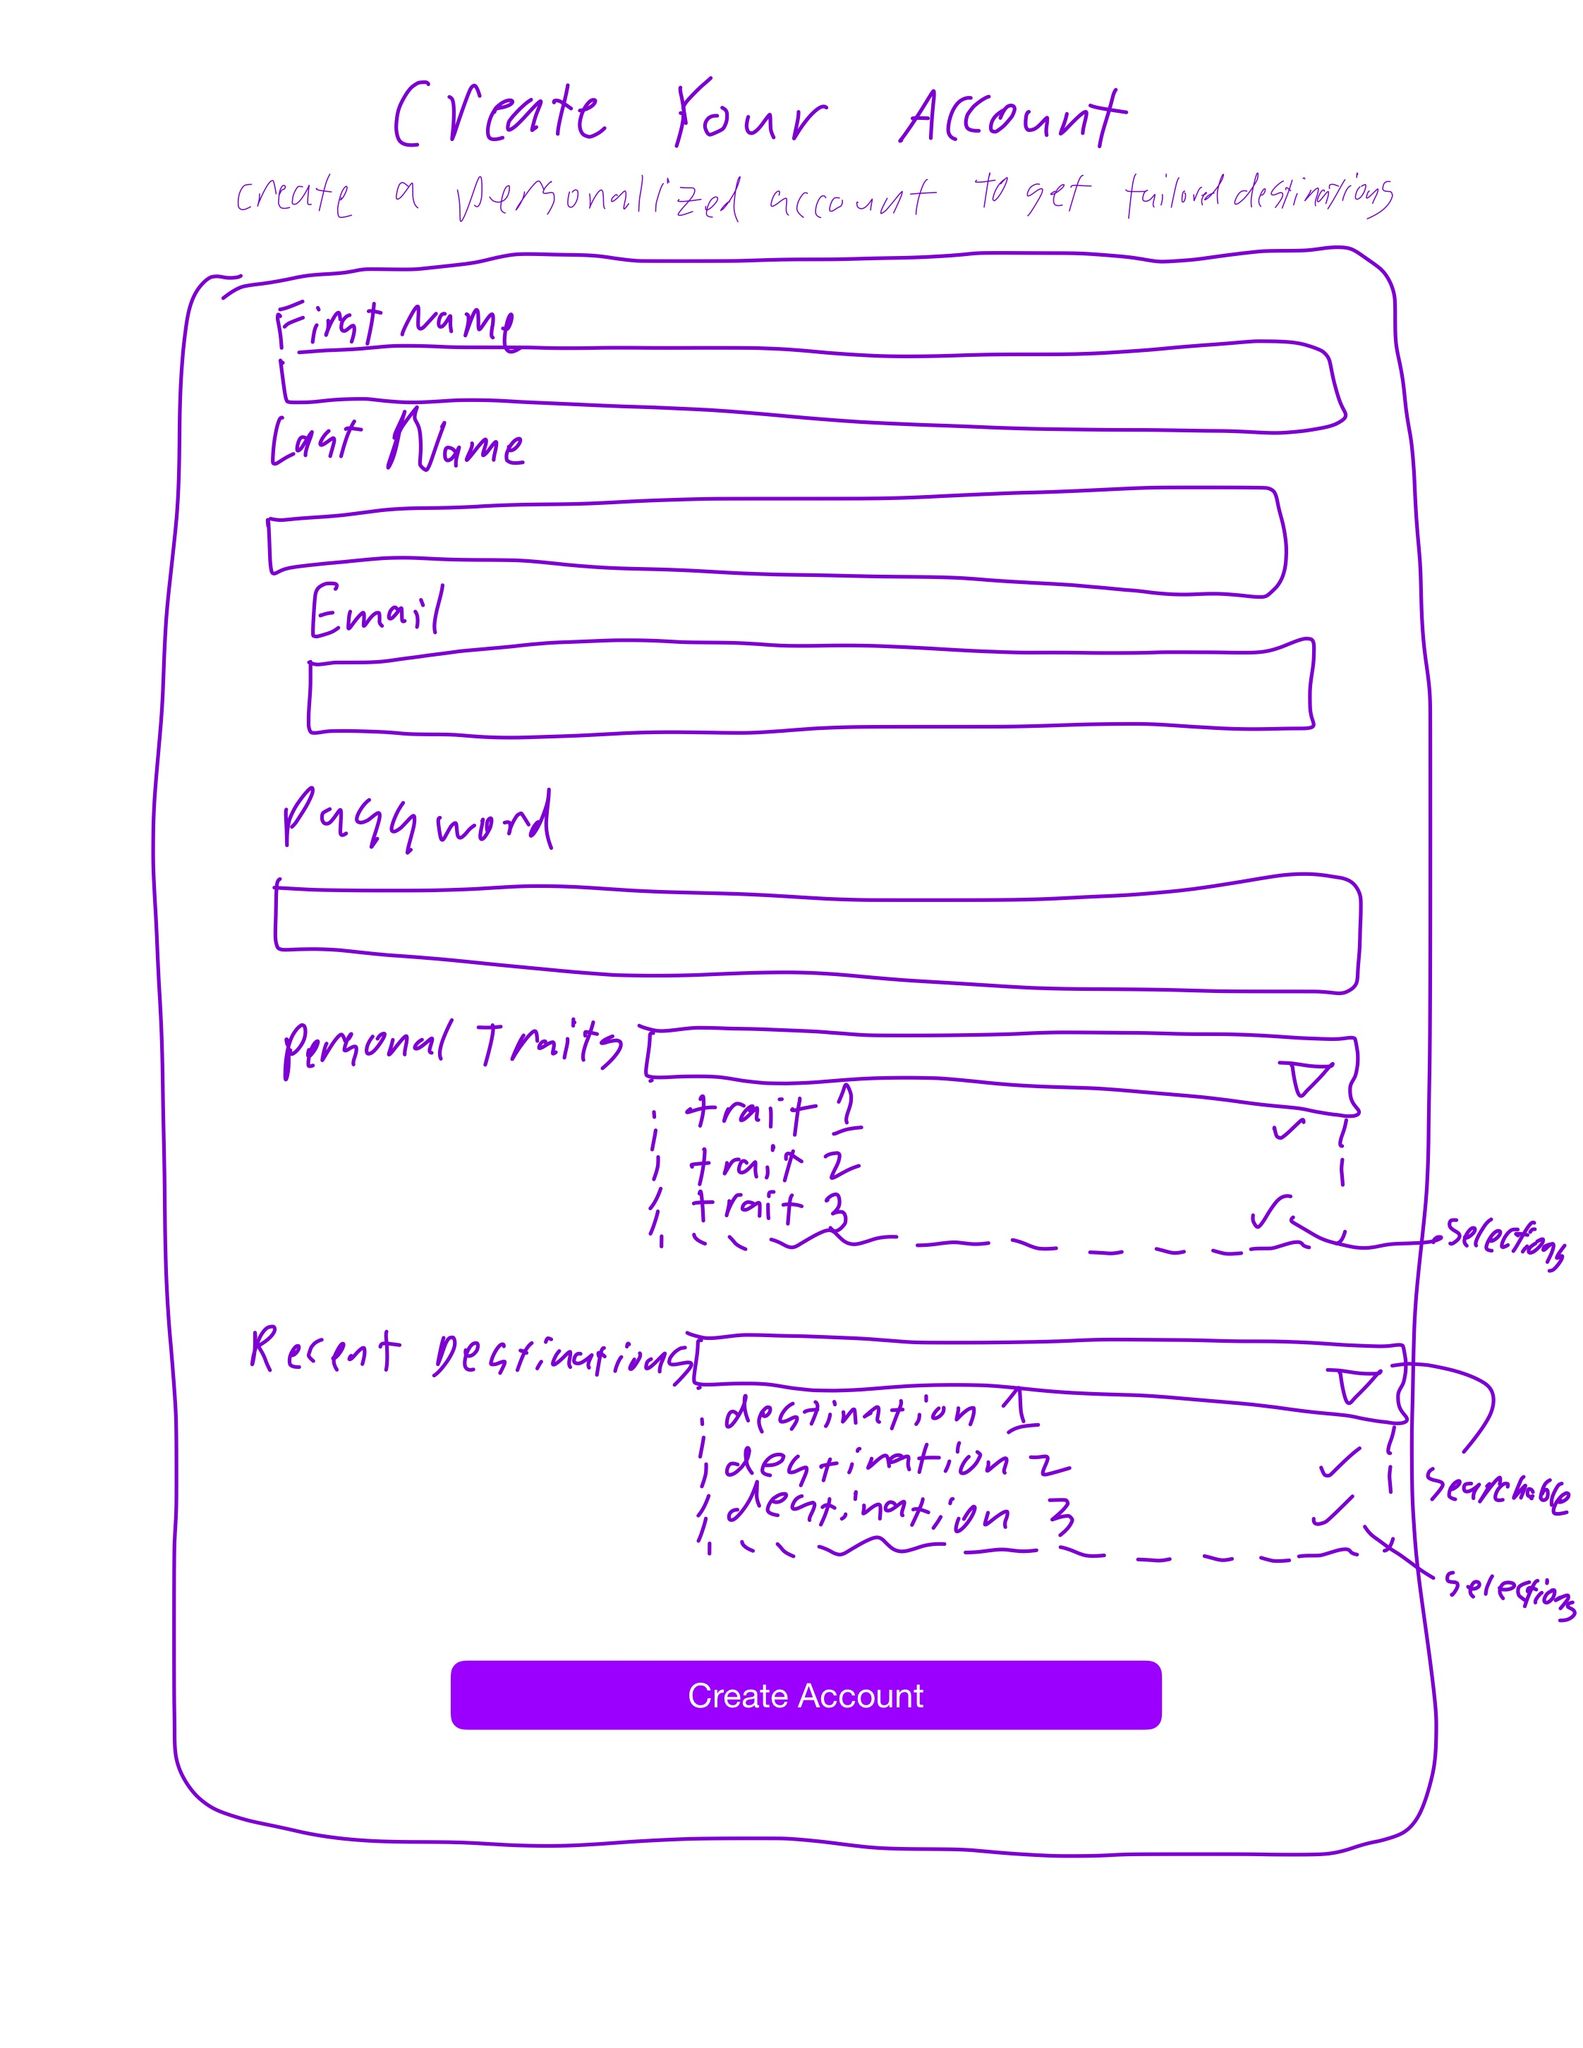 Create Your Account
create a personalized account to get tailored destinations
First Name
Last Name
Email
Password
Personal Traits
trait 1
trait 2
trait 3
selections
Recent Destinations
destination 1
destination 2
searchable
destination 3
selections
Create Account